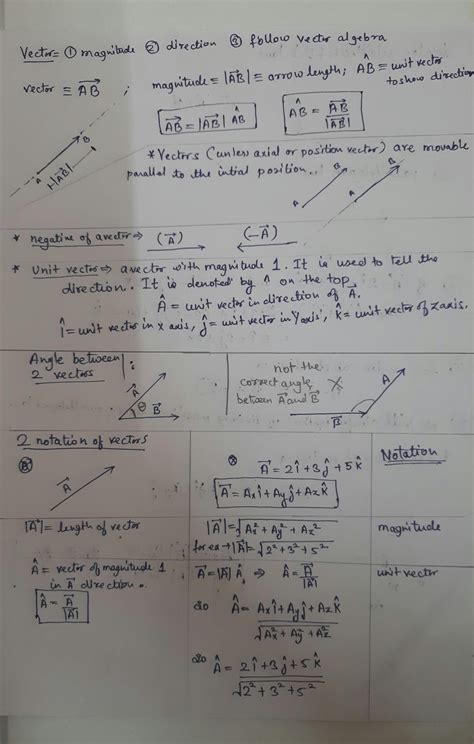 Vector = ① magnitude ② direction ③ follow vector algebra
vector ≡ A⃗B⃗ ; magnitude = |A⃗B⃗| ≡ arrow length; ÂB ≡ unit vector
to show direction
A⃗B⃗ = |A⃗B⃗| ÂB
ÂB = A⃗B⃗ / |A⃗B⃗|
A B |A⃗B⃗|
* Vectors (unless axial or position vector) are movable
parallel to the intial position.
A B A B
* negative of a vector ⇒ (A⃗) (-A⃗)
* Unit vector ⇒ a vector with magnitude 1. It is used to tell the
direction. It is denoted by ^ on the top
Â = unit vector in direction of A⃗.
î = unit vector in x axis, ĵ = unit vector in 'Y axis', k̂ = unit vector of z axis.
Angle between
2 vectors :
A⃗ θ B⃗
not the
correct angle ×
between A⃗ and B⃗
A B⃗
2 notation of vectors
A⃗
A⃗ = 2î + 3ĵ + 5k̂
A⃗ = Axî + Ayĵ + Azk̂
Notation
|A⃗| = length of vector
|A⃗| = √Ax² + Ay² + Az²
for ex → |A⃗| = √2² + 3² + 5²
magnitude
Â = vector of magnitude 1
in A⃗ direction.
Â = A⃗ / |A⃗|
A⃗ = |A⃗| Â ⇒ Â = A⃗ / |A⃗|
unit vector
so Â = Axî + Ayĵ + Azk̂ / √Ax² + Ay² + Az²
so Â = 2î + 3ĵ + 5k̂ / √2² + 3² + 5²